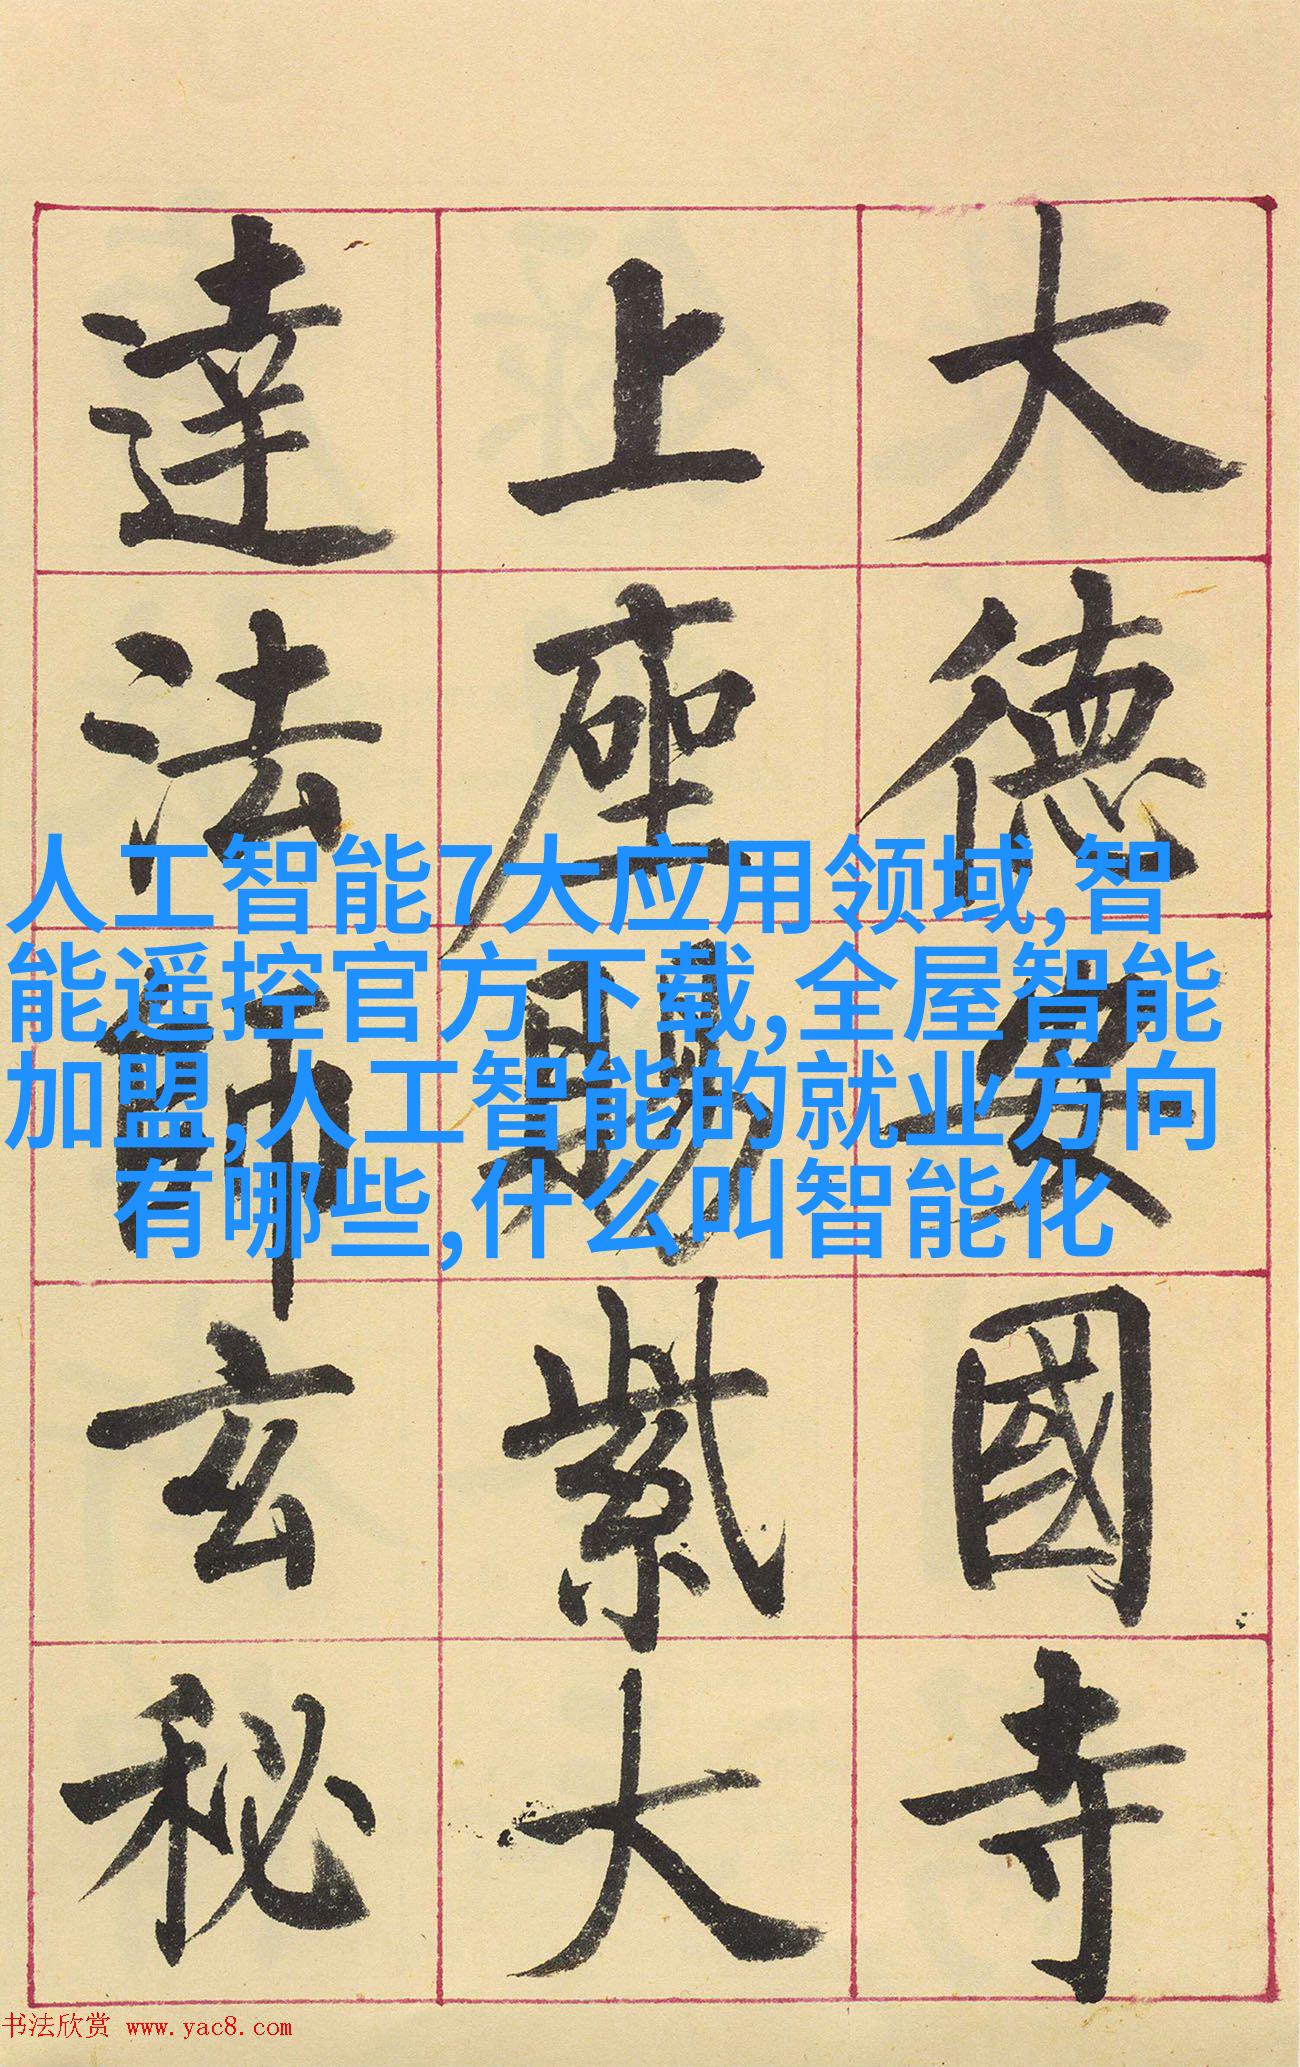 大德安國寺
上座賜紫大
達法師玄秘
人工智能7大应用领域,智
能遥控官方下载,全屋智能
加盟,人工智能的就业方向
有哪些,什么叫智能化
书法欣赏 www.yac8.com